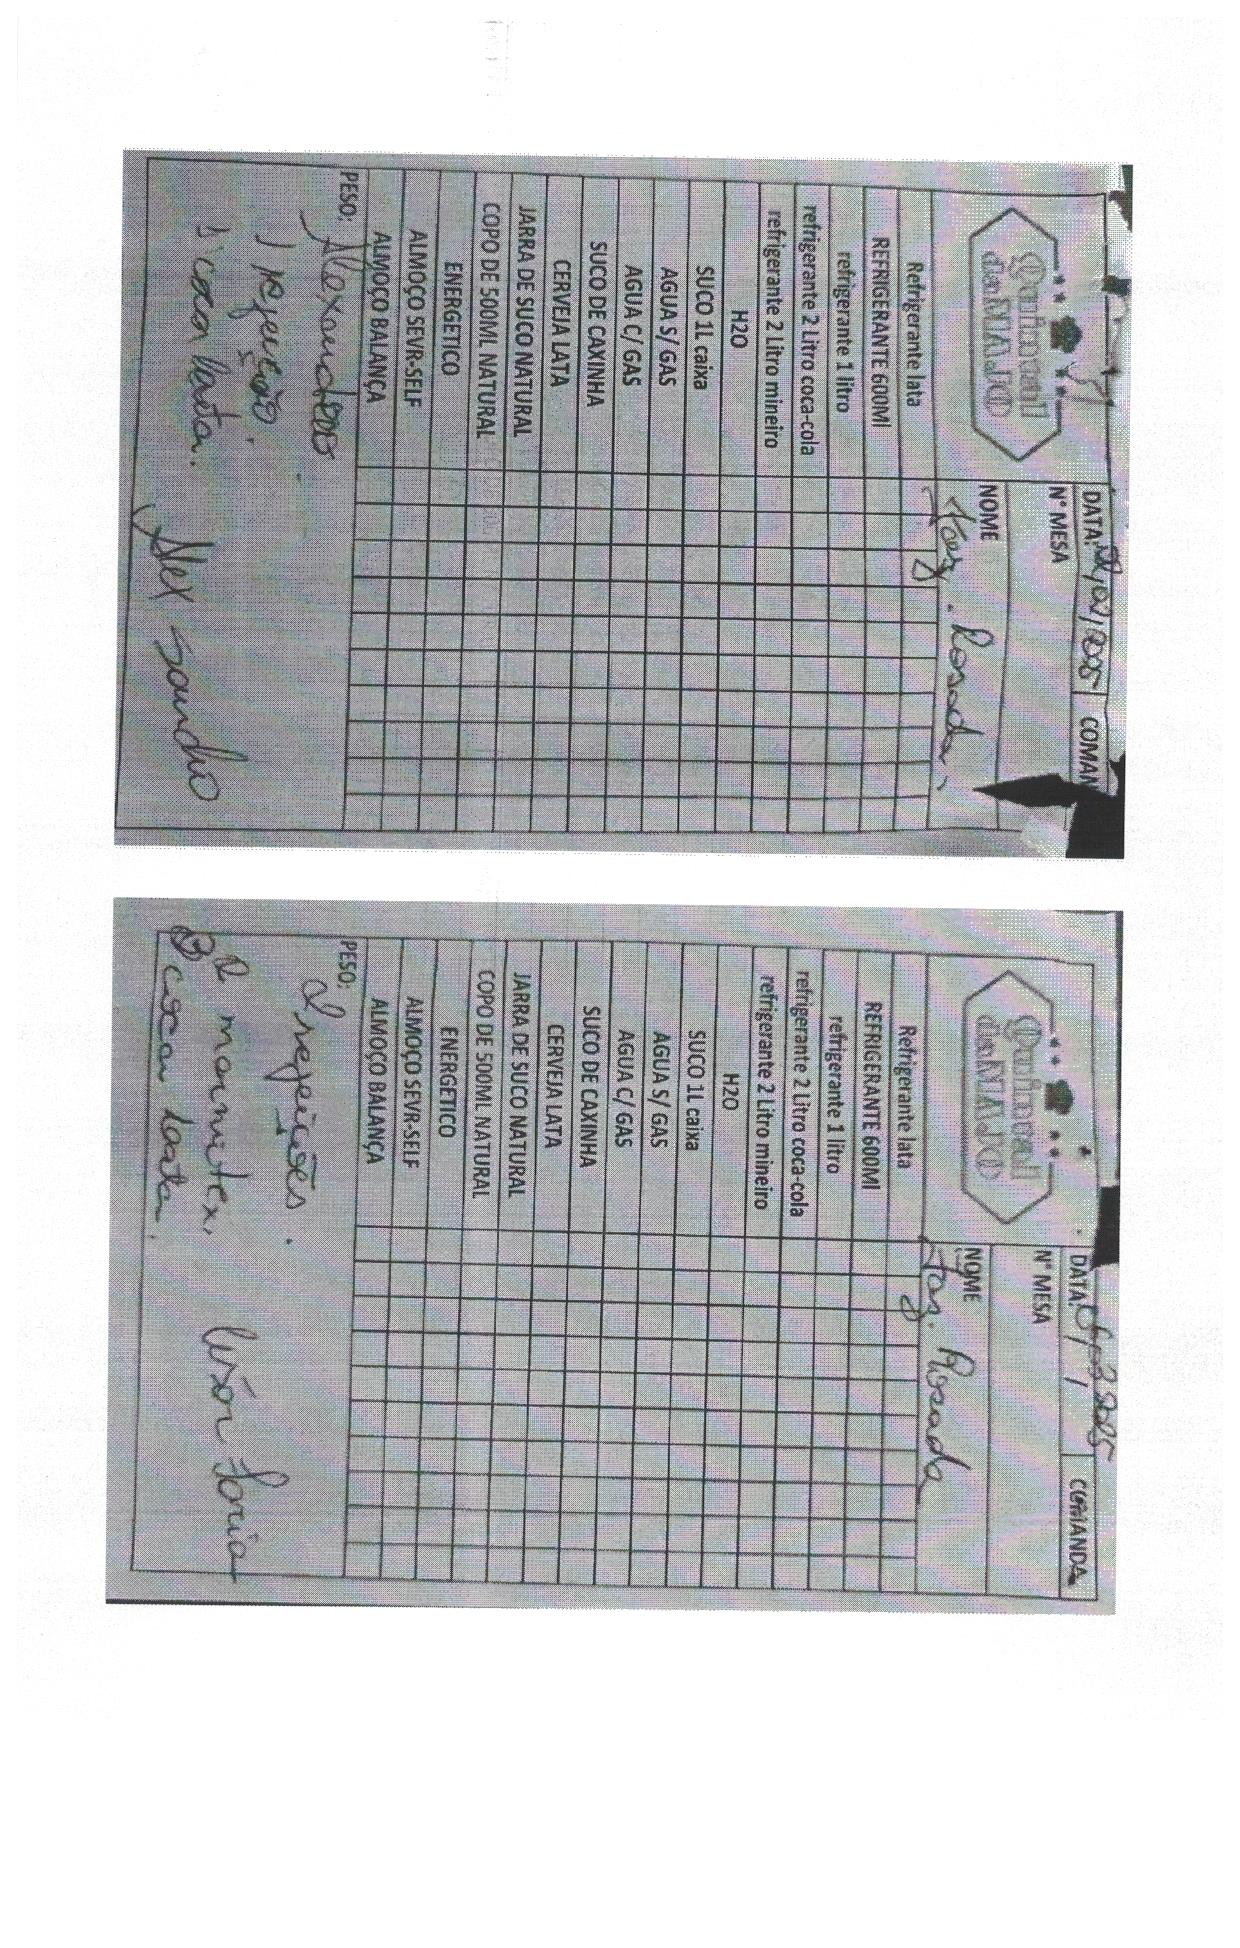 Quintal
da MAJO
DATA: /2025
COMAN
N° MESA
NOME
Faz. Rosada
Refrigerante lata
REFRIGERANTE 600Ml
refrigerante 1 litro
refrigerante 2 Litro coca-cola
refrigerante 2 Litro mineiro
H2O
SUCO 1L caixa
AGUA S/ GAS
AGUA C/ GAS
SUCO DE CAXINHA
CERVEJA LATA
JARRA DE SUCO NATURAL
COPO DE 500ML NATURAL
ENERGETICO
ALMOÇO SEVR-SELF
ALMOÇO BALANÇA
PESO:
1 refeição.
1 coca lata.
Alex Sandro
Quintal
da MAJO
DATA: 2025
COMANDA
N° MESA
NOME
Faz. Rosada
Refrigerante lata
REFRIGERANTE 600Ml
refrigerante 1 litro
refrigerante 2 Litro coca-cola
refrigerante 2 Litro mineiro
H2O
SUCO 1L caixa
AGUA S/ GAS
AGUA C/ GAS
SUCO DE CAXINHA
CERVEJA LATA
JARRA DE SUCO NATURAL
COPO DE 500ML NATURAL
ENERGETICO
ALMOÇO SEVR-SELF
ALMOÇO BALANÇA
PESO:
2 refeições.
2 marmitex.
coca lata.